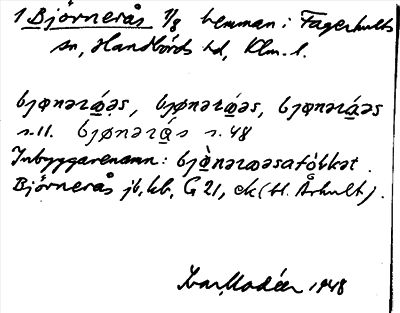 1 Björnerås 1/8 hemman i Fagerhults
sn, Handbörds hd, Klm. l.
bjønərǿəs, bjønərǿəs, bjønəráəs
s. 11. bjønərás s. 48
Inbyggarenamn: bjø̀nərəəsafól̀kət.
Björnerås jb, kb, G 21, ek (bl. Århult).
Ivar Modéer 1948